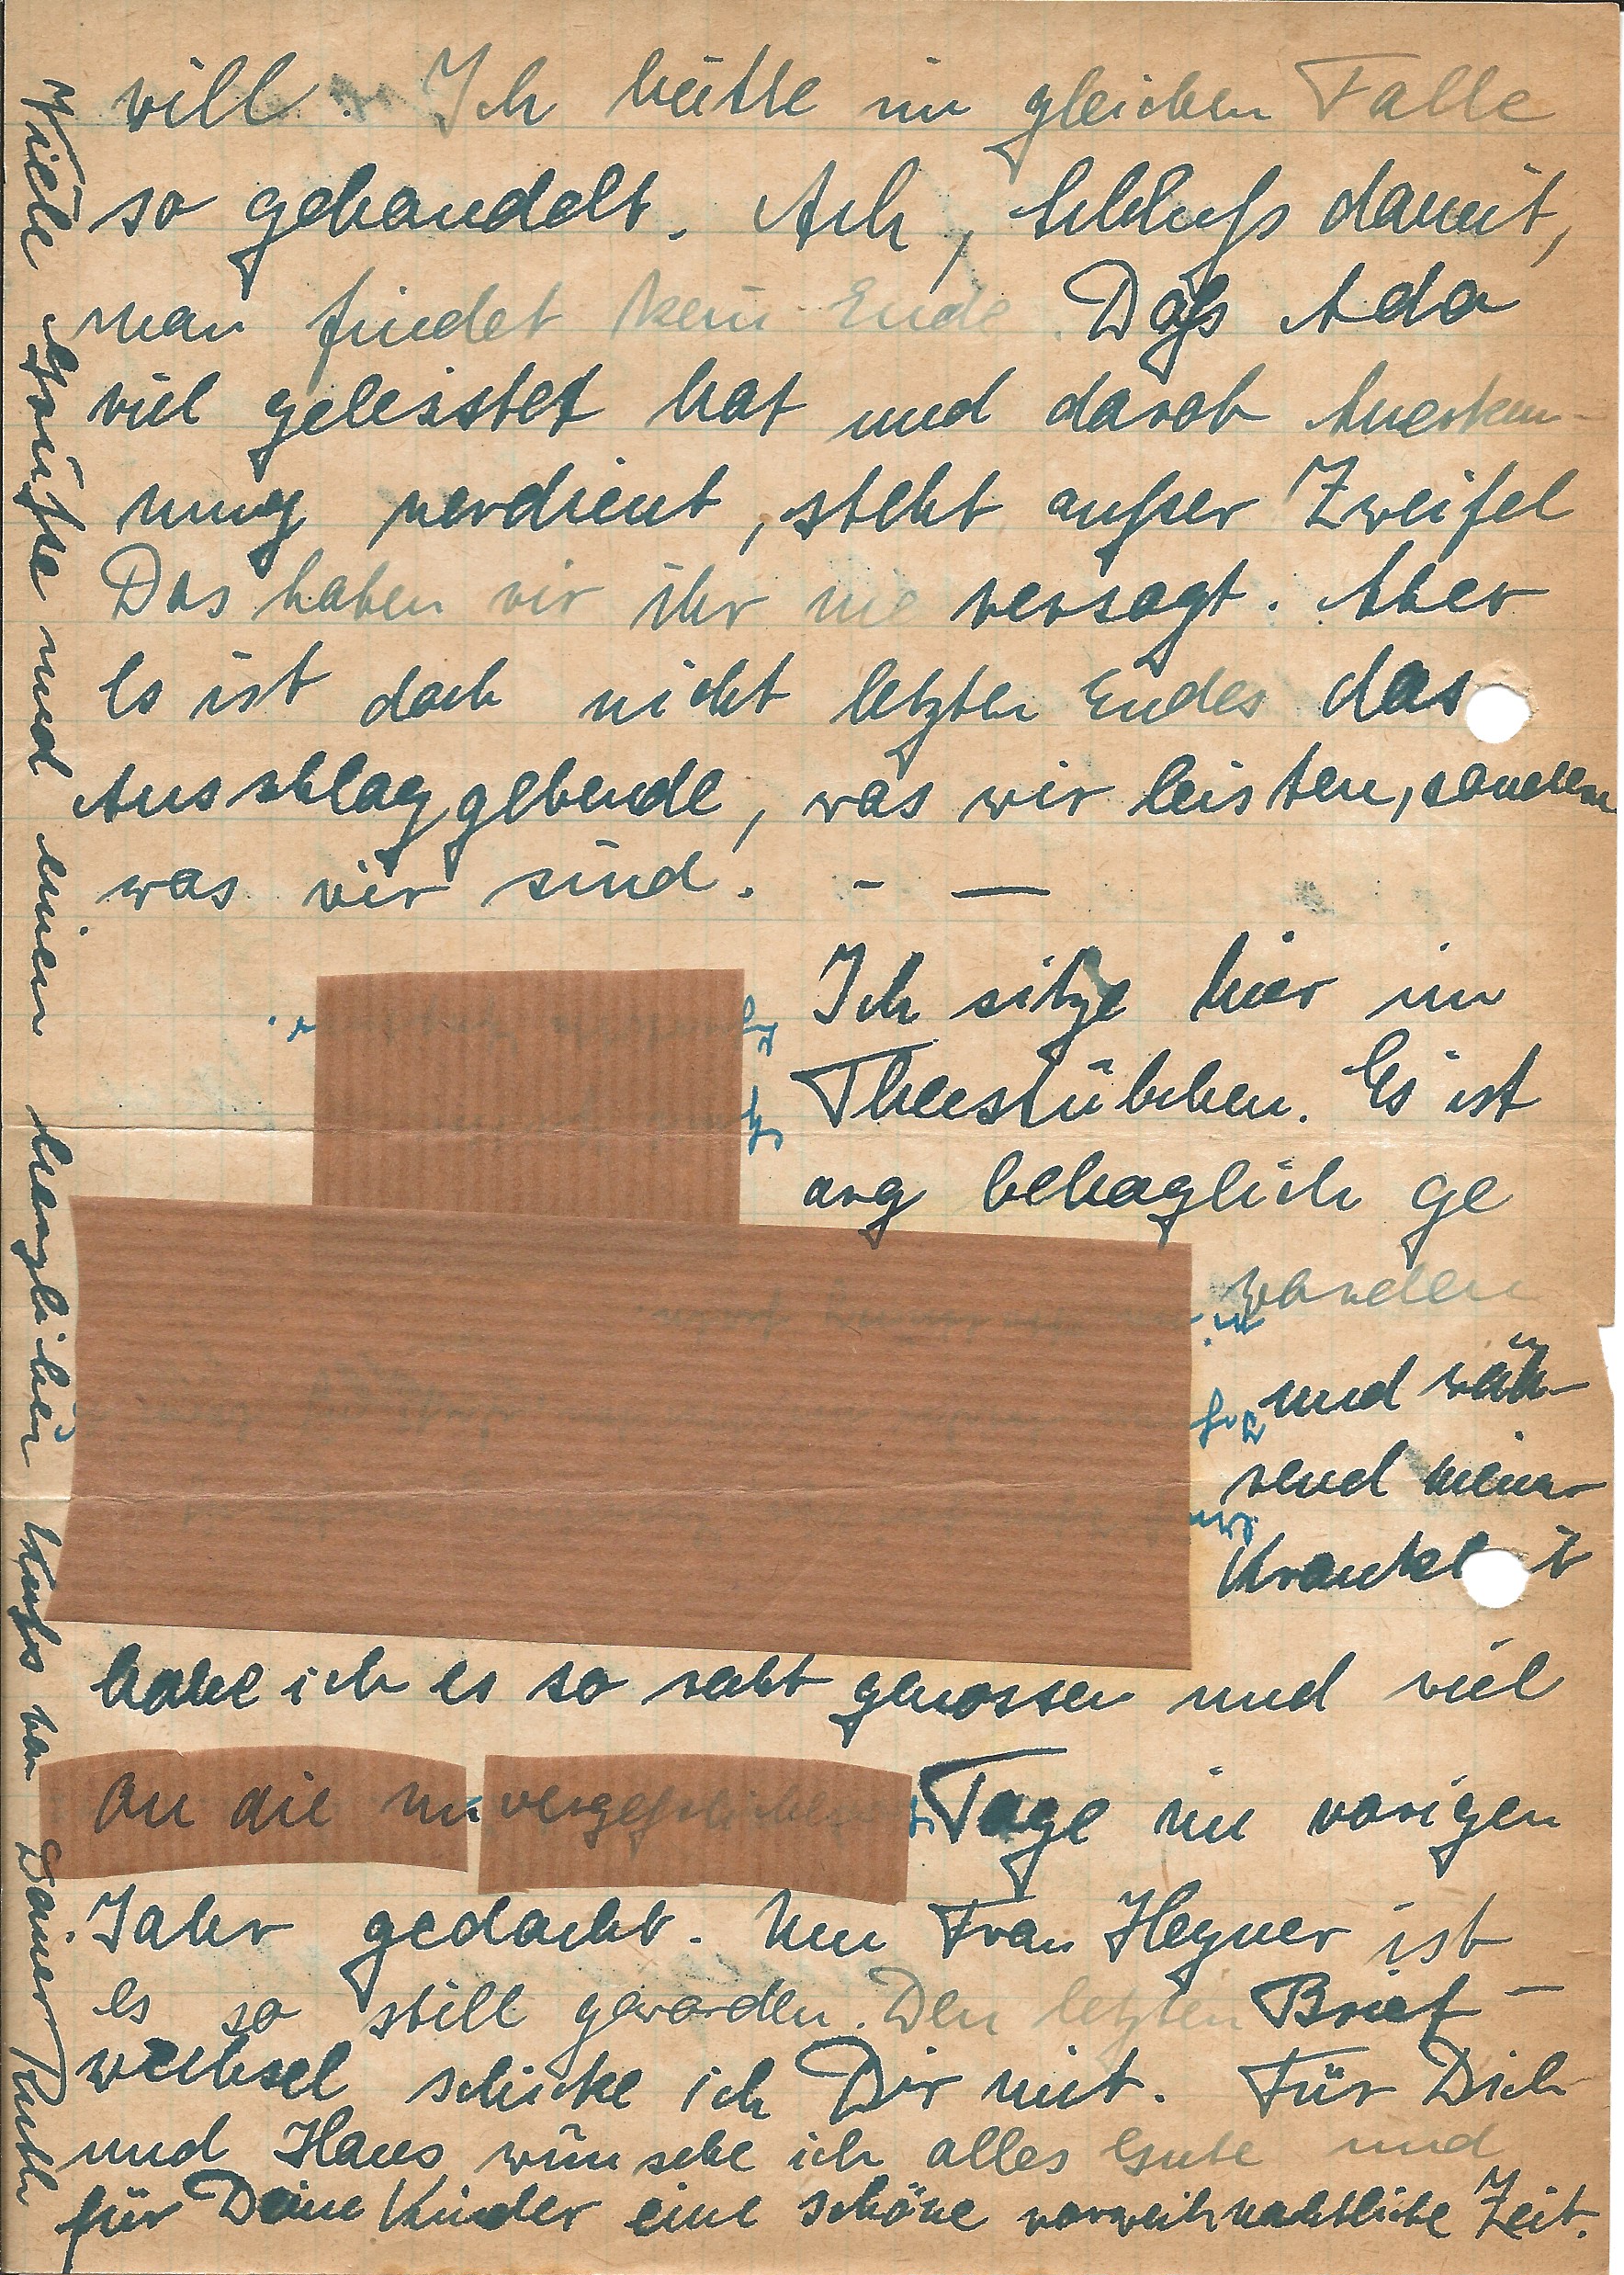 will. Ich hätte im gleichen Falle
so gehandelt. Ach, Schluſs damit,
man findet kein Ende. Daſs Ada
viel geleistet hat und darob Anerken-
nung verdient, steht auſser Zweifel
Das haben wir ihr nie versagt. Aber
Es ist doch nicht letzten Endes das
Ausschlaggebende, was wir leisten, sondern
was wir sind. - —
Ich sitze hier im
Theestübchen. Es ist
arg behaglich ge
worden
und wäh-
rend meiner
Krankheit
habe ich es so recht genossen und viel
an die unvergeſslichen Tage im vorigen
Jahr gedacht. Um Frau Heyner ist
es so still geworden. Den letzten Brief-
wechsel schicke ich Dir mit. Für Dich
und Hans wünsche ich alles Gute und
für Deine Kinder eine schöne vorweihnachtliche Zeit.
Viele Grüſse und einen herzlichen Kuſs von Deiner Ruth